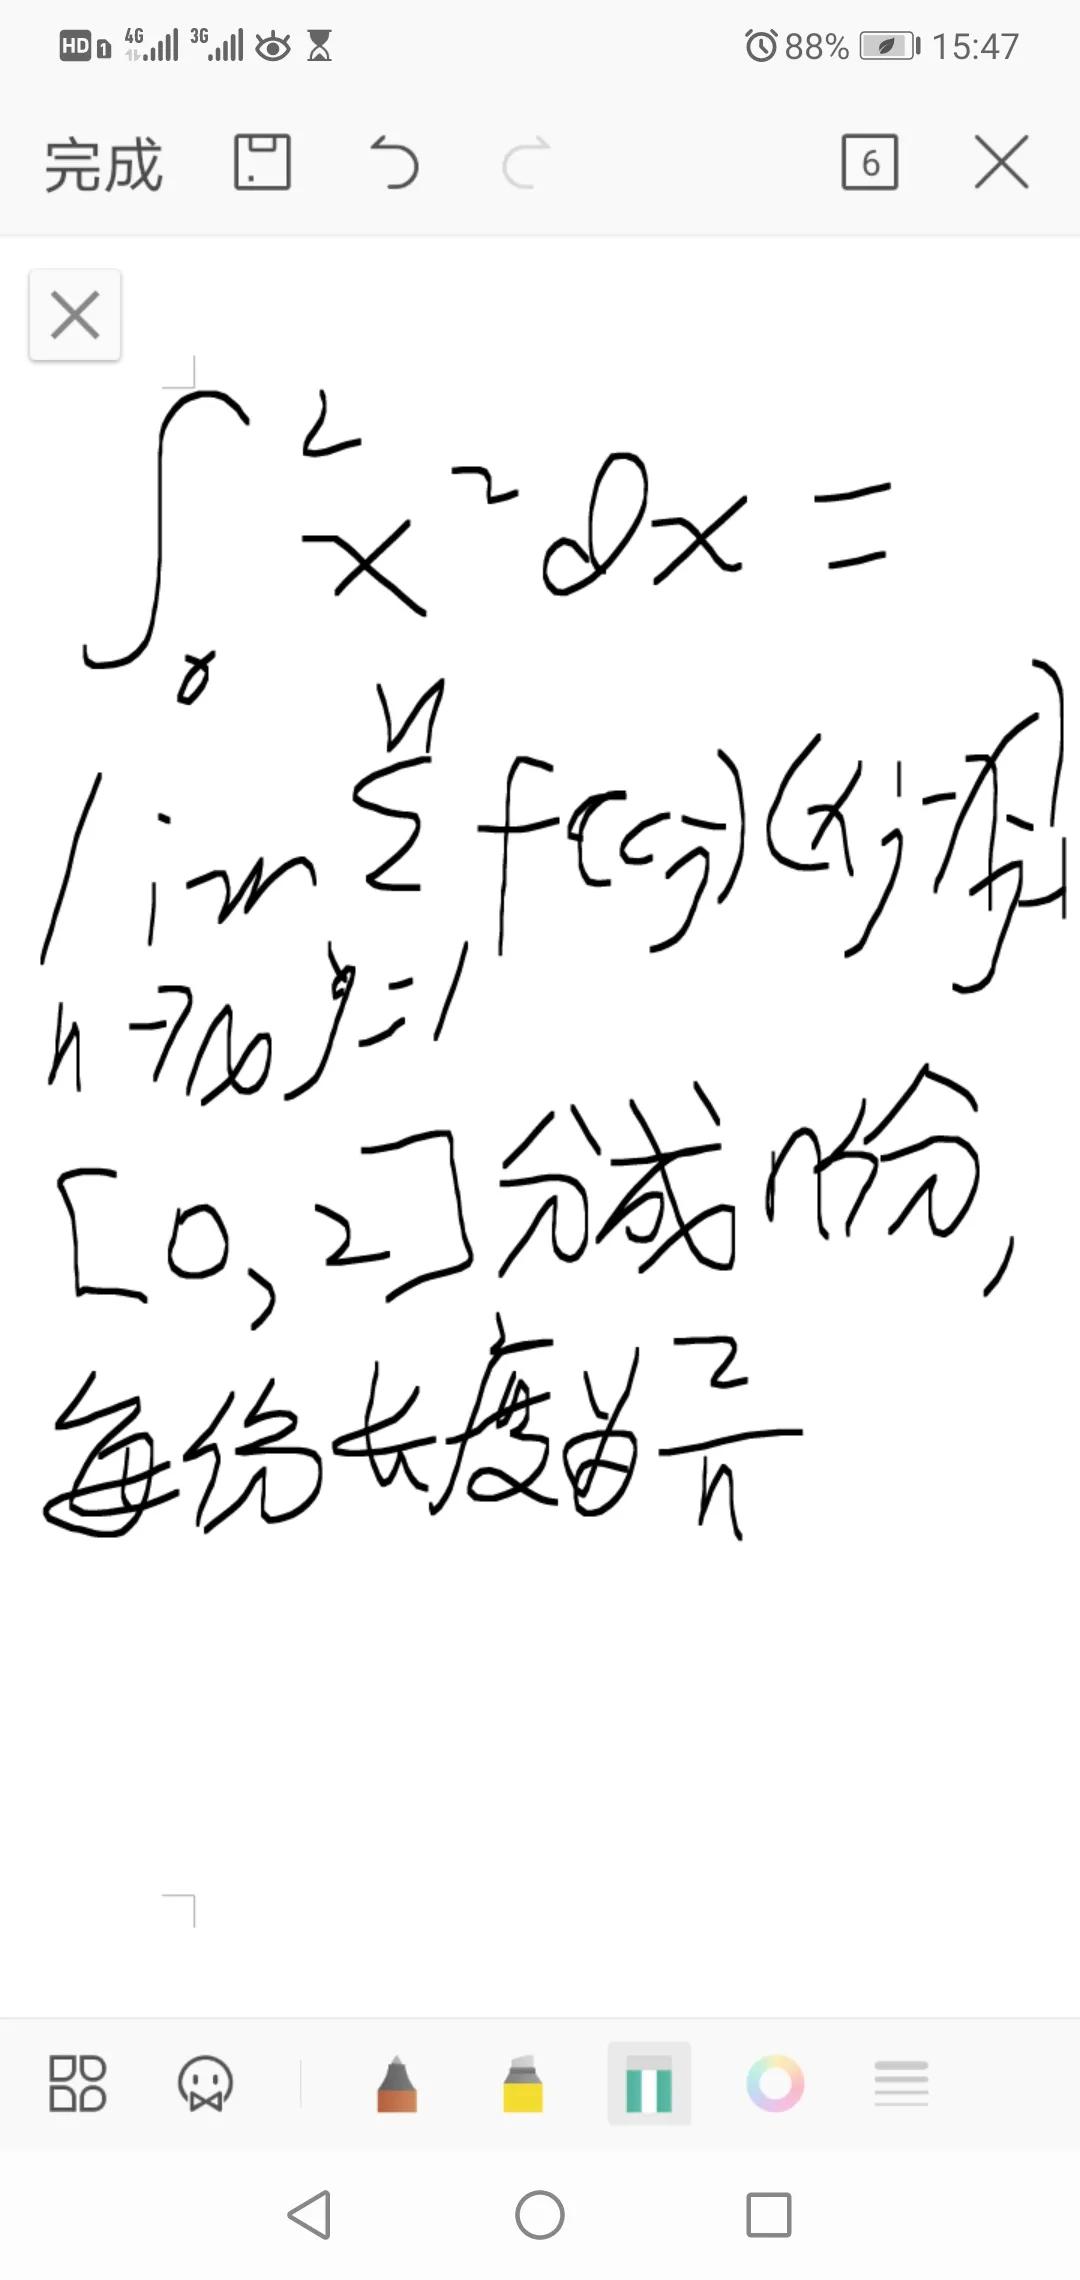 HD 1 4G 3G 88% 15:47
完成 6
∫₀² x² dx =
lim n→∞ Σ j=1 n f(cj)(xj - xj-1)
[0,2]分成n份,
每份长度为 2/n